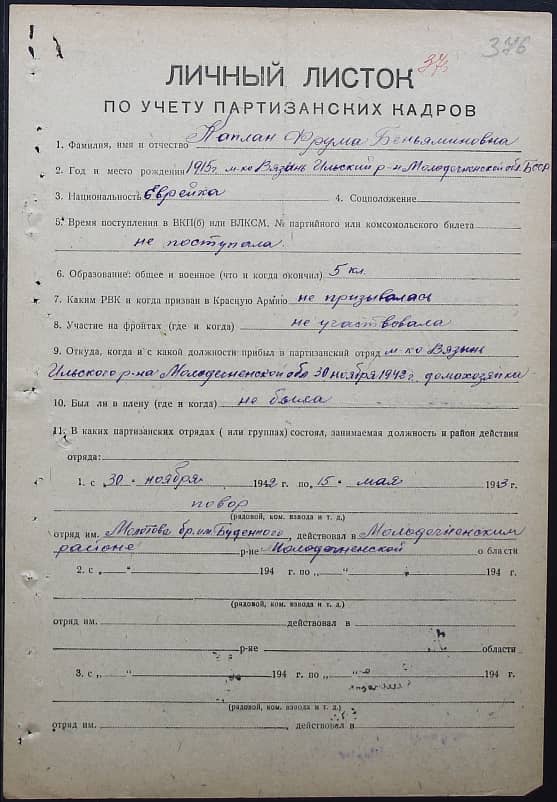 376
376
ЛИЧНЫЙ ЛИСТОК
ПО УЧЕТУ ПАРТИЗАНСКИХ КАДРОВ
1. Фамилия, имя и отчество Каплан Фрума Беньяминовна
2. Год и место рождения 1915г. м-ко Вязынь Ильский р-н Молодечненской обл. БССР
3. Национальность Еврейка 4. Соцположение
5. Время поступления в ВКП(б) или ВЛКСМ, № партийного или комсомольского билета
не поступала.
6. Образование: общее и военное (что и когда окончил) 5 кл.
7. Каким РВК и когда призван в Красную Армию не призывалась
8. Участие на фронтах (где и когда) не участвовала
9. Откуда, когда и с какой должности прибыл в партизанский отряд м-ко Вязынь
Ильского р-на Молодечненской обл 30 ноября 1942 г. домахозяйка
10. Был ли в плену (где и когда) не была
11. В каких партизанских отрядах ( или группах) состоял, занимаемая должность и район действия
отряда:
1. с 30 " ноября 1942 г. по „15 " мая 1943 г.
повор
(рядовой, ком. взвода и т. д.)
отряд им. Молотова бр. им. Буденного, действовал в Молодечненским
районе р-не Молодечненской о бласти
2. с „ “ 194 г. по „ “ 194 г.
(рядовой, ком. взвода и т. д.)
отряд им. действовал в
р-не области
3. с „ “ 194 г. по „ “ 194 г.
(рядовой, ком. взвода и т. д.)
отряд им. действовал в